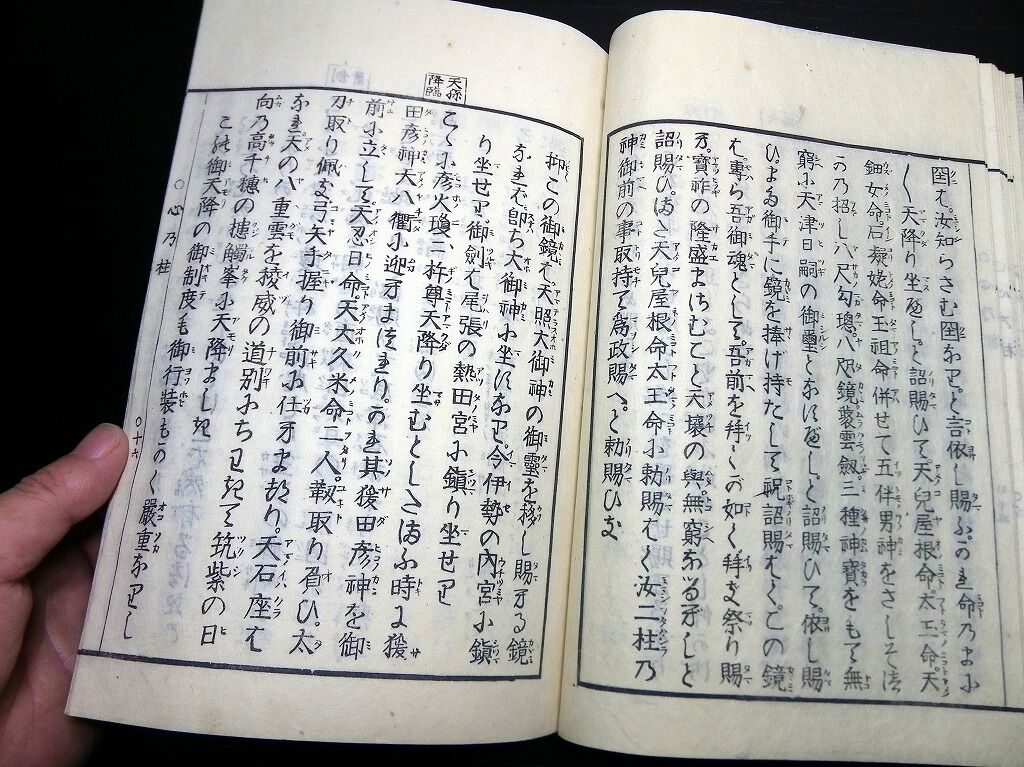 囶は。汝知らさむ囶なり。と言依し賜ふ。かれ命乃まに
〱天降り坐べし。と詔賜ひて天兒屋根命。太玉命。天
鈿女命石凝姥命玉祖命併せて五伴男神をさしそへ
かの招し八尺勾璁。八咫鏡。叢雲劔。三種神寶をもて無
窮に天津日嗣の御璽となすべし。と詔賜ひて。依し賜
ひ。また御手に鏡を捧げ持たして祝詔賜はく。この鏡
は。專ら吾御魂として。吾前を拜くの如く拜き祭り賜
へ。寶祚の隆盛まさむこと天壤の與無窮なるべしと
詔賜ひ。また天兒屋根命太玉命に勅賜はく汝二柱乃
神御前の事取持て爲政賜へ。と勅賜ひき
天孫降臨
抑この御鏡は天照大御神の御靈を移し賜へる鏡
なれば即ち大御神に坐すなり。今伊勢の內宮に鎭
り坐せり。御劍は尾張の熱田宮に鎭り坐せり
こゝに彦火瓊々杵尊天降り坐むとしたまふ時に猨
田彦神天八衢に迎へまつれり。かれ其猨田彦神を御
前に立して。天忍日命。天大久米命二人。靫取り負ひ。太
刀取り佩き。弓矢手握り御前に仕へまつり。天石座は
なれ天の八重雲を稜威の道別にちわきて筑紫の日
向乃高千穗の槵觸峯に天降ましき
この御天降の御制度も御行裝ものく嚴重なりし
○心乃柱 ○十七